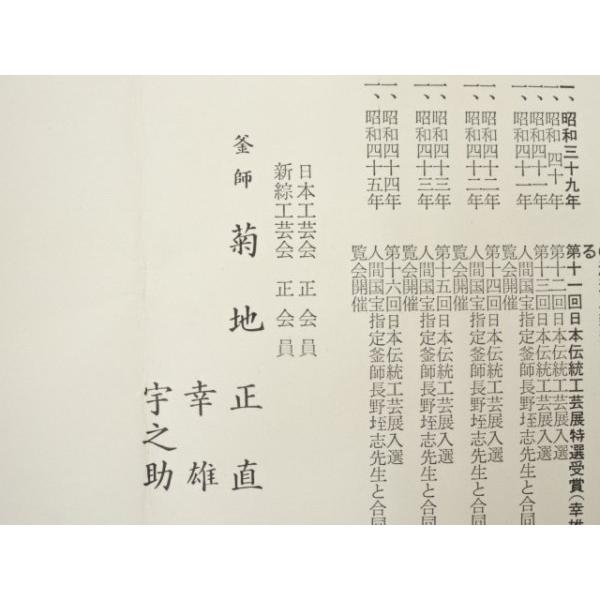 る
一、昭和三十九年 第十一回日本伝統工芸展特選受賞(幸雄
一、昭和 四十年 第十二回日本伝統工芸展入選
一、昭和四十一年 第十三回日本伝統工芸展入選
一、昭和四十一年 人間国宝指定釜師長野垤志先生と合同
覧会開催
一、昭和四十二年 第十四回日本伝統工芸展入選
一、昭和四十二年 人間国宝指定釜師長野垤志先生と合同
覧会開催
一、昭和四十三年 第十五回日本伝統工芸展入選
一、昭和四十三年 人間国宝指定釜師長野垤志先生と合同
覧会開催
一、昭和四十四年 第十六回日本伝統工芸展入選
一、昭和四十五年 人間国宝指定釜師長野垤志先生と合同
覧会開催
日本工芸会 正会員
新綜工芸会 正会員
釜師 菊地 正直
幸雄
宇之助